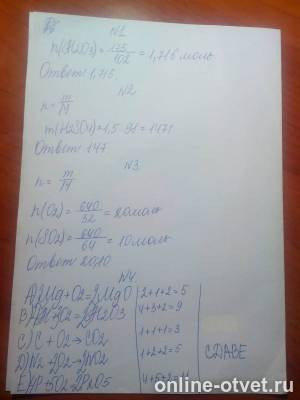 №1
n(Al2O3)= 175/102 = 1,716 моль
Ответ 1,716.
№2
n= m/M
m(H2SO4)=1,5·91=147г
Ответ 147
№3
n= m/M
n(O2)= 640/32 = 20моль
n(SO2)= 640/64 = 10моль
Ответ 20;10
№4
A)2Mg+O2=2MgO 2+1+2=5
B)4Al+3O2=2Al2O3 4+3+2=9
C)C + O2→CO2 1+1+1=3
D)N2+2O2→2NO2 1+2+2=5
E)4P+5O2→2P2O5 4+5+2=11
CDABE
online-otvet.ru